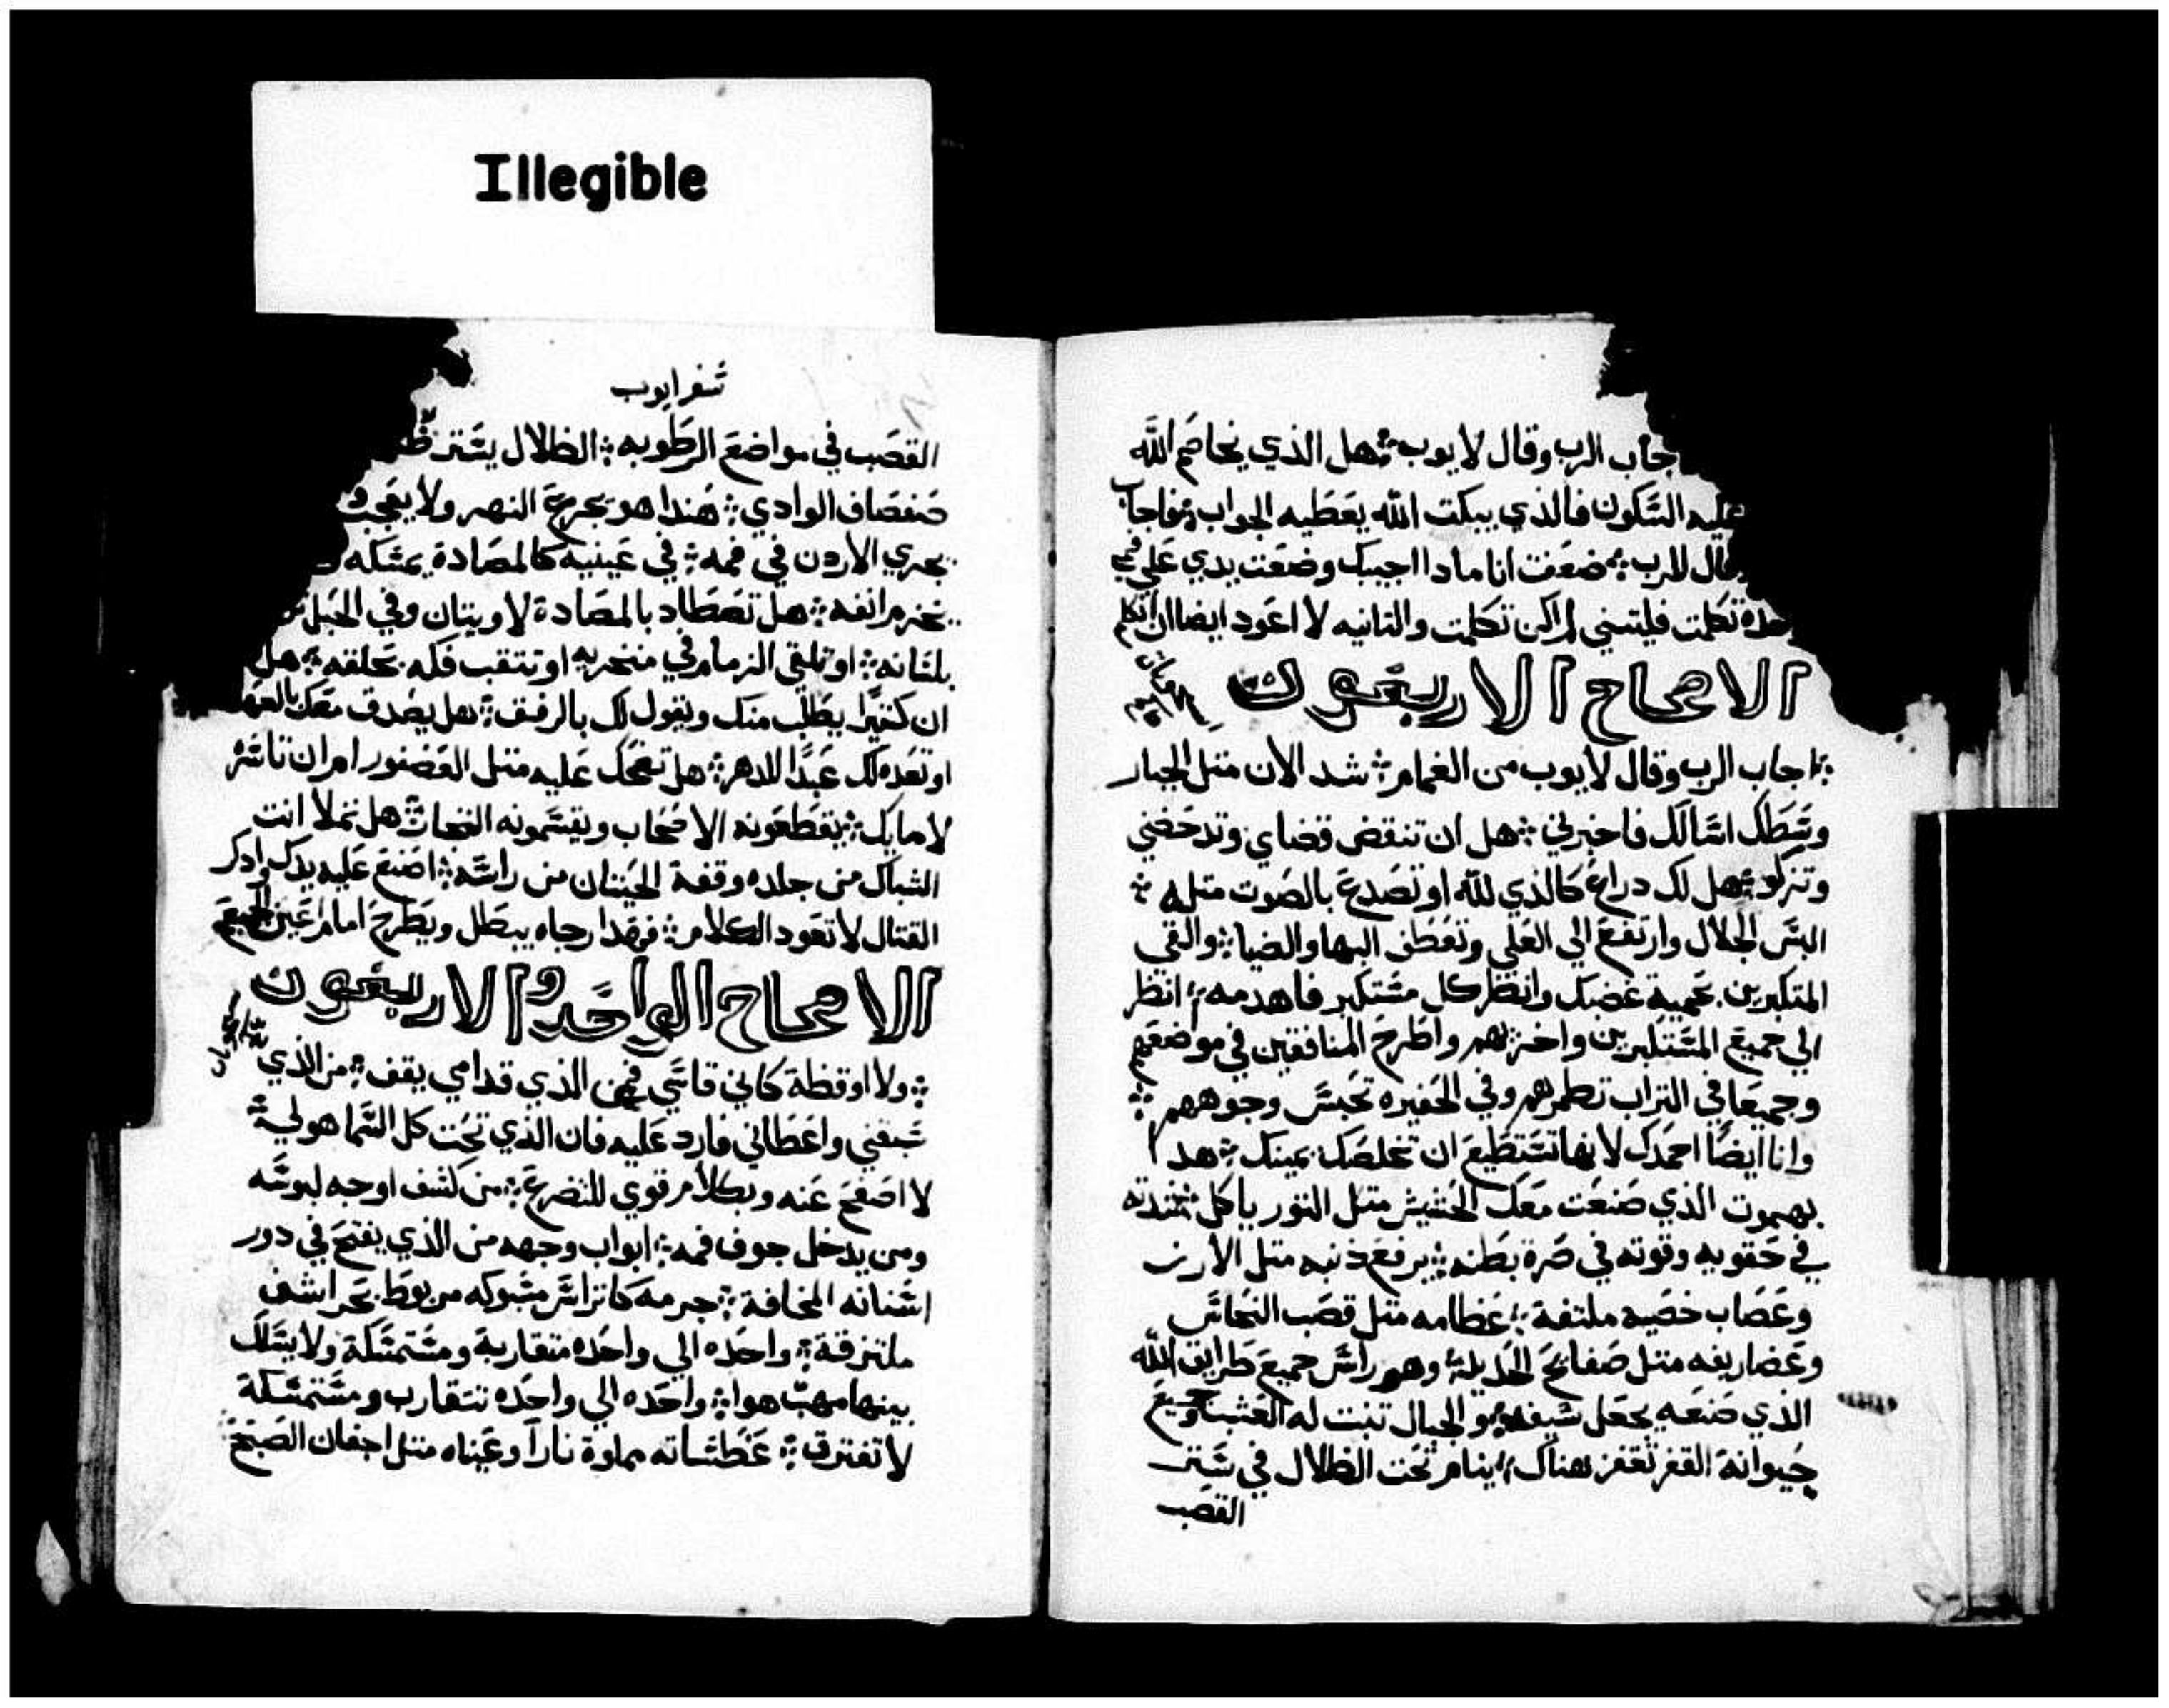 Illegible
جاب الرب وقال لايوب هل الذي يخاصم الله
عليه السكون فالذي يبكت الله يعطيه الجواب فاجاب
قال للرب ضعفت انا مادا اجيبك وضعت يدي علي فمي
حده تكلمت فليتني لم اكن تكلمت والتانيه لا اعود ايضا ان اتكلم
الاصحاح الاربعون
اجاب الرب وقال لايوب من الغمام شد الان متل الجبار
وسطك اسالك فاخبرني هل ان تنقض قضاي وتدحضني
وتزكو هل لك دراع كالذي لله او تصدع بالصوت متله
البس الجلال وارتفع الي العلي وتعطف البها والضيا والقي
المتكبرين بحمية غضبك وانظر كل مستكبر فاهدمه انظر
الي جميع المستكبرين واخزيهم واطرح المنافقين في مواضعهم
وجميعا في التراب تطمرهم وفي الحفيره تحبس وجوههم
وانا ايضا احمدك لانها تستطيع ان تخلصك يمينك هدا
بهموت الذي صنعت معك الحشيش متل التور ياكل شدته
في حقويه وقوته في صرة بطنه يرفع ذنبه متل الارز
وعصاب خصيه ملتفة عظامه متل قصب النحاس
وغضاريفه متل صفايح الحديد وهو راس جميع طرايق الله
الذي صنعه يجعل سيفه والجبال تنبت له العشب وجميع
حيوانة القفر تقفز هناك ينام تحت الظلال في ستر
القصب
سفر ايوب
القصب في مواضع الرطوبه الظلال يستر
صفصاف الوادي هندا هو يجرع النهر ولا يعجب
يجري الاردن في فمه في عينيه كالمصادة يمسكه
يخزم انفه هل تصطاد بالمصادة لاويتان وفي الحبل
بلسانه او تلقي الزمام في منخريه او تتقب فكه بحلقه هل
ان كتيرا يطلب منك ويقول لك بالرفق هل يصدق معك بالعهد
او تعده لك عبدا للدهر هل تضحك عليه متل العصفور ام ان تاسره
لامايك يقطعونه الاصحاب ويقسمونه التجار هل تملا انت
الشباك من جلده وقفة الحيتان من راسه اصنع عليه يدك وادكر
القتال لا تعود الكلام فهدا رجاه يبطل ويطرح امام اعين الجميع
الاصحاح الواحد والاربعون
ولا اوقظة كاني قاسي فمن الذي قدامي يقف من الذي
سبقني واعطاني فارد عليه فان الذي تحت كل السما هو لي
لا اصفح عنه وبكلام قوي للتضرع من كشف اوجه لبوسه
ومن يدخل جوف فمه ابواب وجهه من الذي يفتح في دور
اسنانه المخافة جرمه كاتراس مسبوكه مربوط بحراشف
ملتزقة واحده الي واحده متقاربة ومستمسكة ولا يسلك
بينها مهب هوا واحده الي واحده تتقارب ومستمسكة
لا تفترق عطساته مملوة نارا وعيناه متل اجفان الصبح